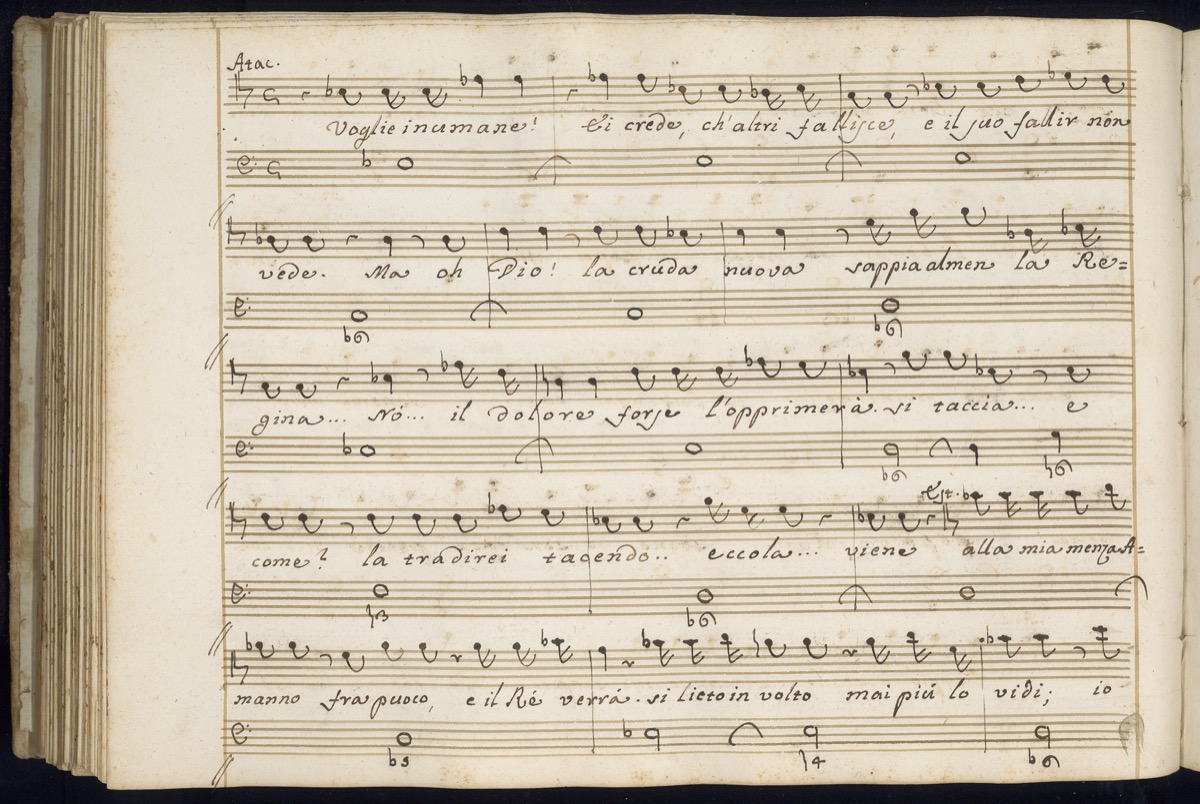 Atac.
Voglie inumane! Ei crede, ch'altri fallisce, e il suo fallir non
vede. Ma oh Dio! la cruda nuova sappia almen la Re=
b6 b6
gina... Nó... il dolore forse l'opprimerà. si taccia... e
b6 ♮6
Est.
come? la tradirei tacendo.. eccola... viene alla mia menza A=
♮3 b6
manno fra puoco, e il Ré verrá. si lieto in volto mai piú lo vidi; io
b5 ♮4 b6